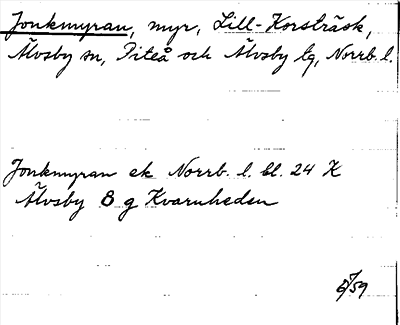 Jonkmyran, myr, Lill-Korsträsk,
Älvsby sn, Piteå och Älvsby tg, Norrb. l.
Jonkmyran ek Norrb. l. bl. 24 K
Älvsby 8 g Kvarnheden